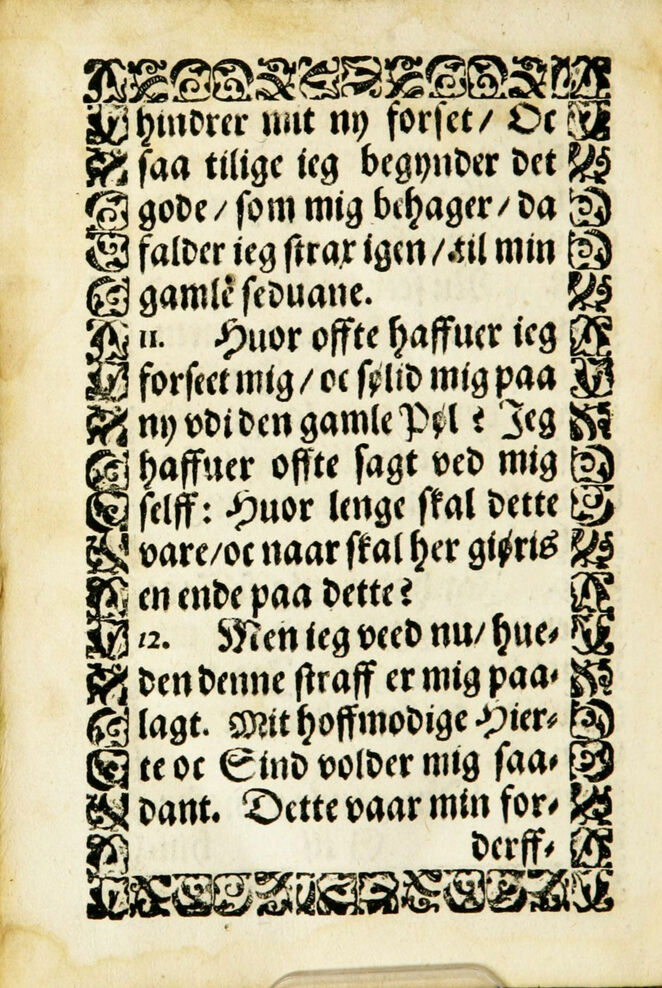 hindrer mit ny forset/ Oc
saa tilige ieg begynder det
gode/ som mig behager/ da
falder ieg strax igen/ til min
gamle seduane.
11. Huor offte haffuer ieg
forseet mig/ oc sølid mig paa
ny vdi den gamle Pøl? Jeg
haffuer offte sagt ved mig
selff: Huor lenge skal dette
vare/ oc naar skal her giøris
en ende paa dette?
12. Men ieg veed nu/ hue-
den denne straff er mig paa-
lagt. Mit hoffmodige Hier-
te oc Sind volder mig saa-
dant. Dette vaar min for-
derff-